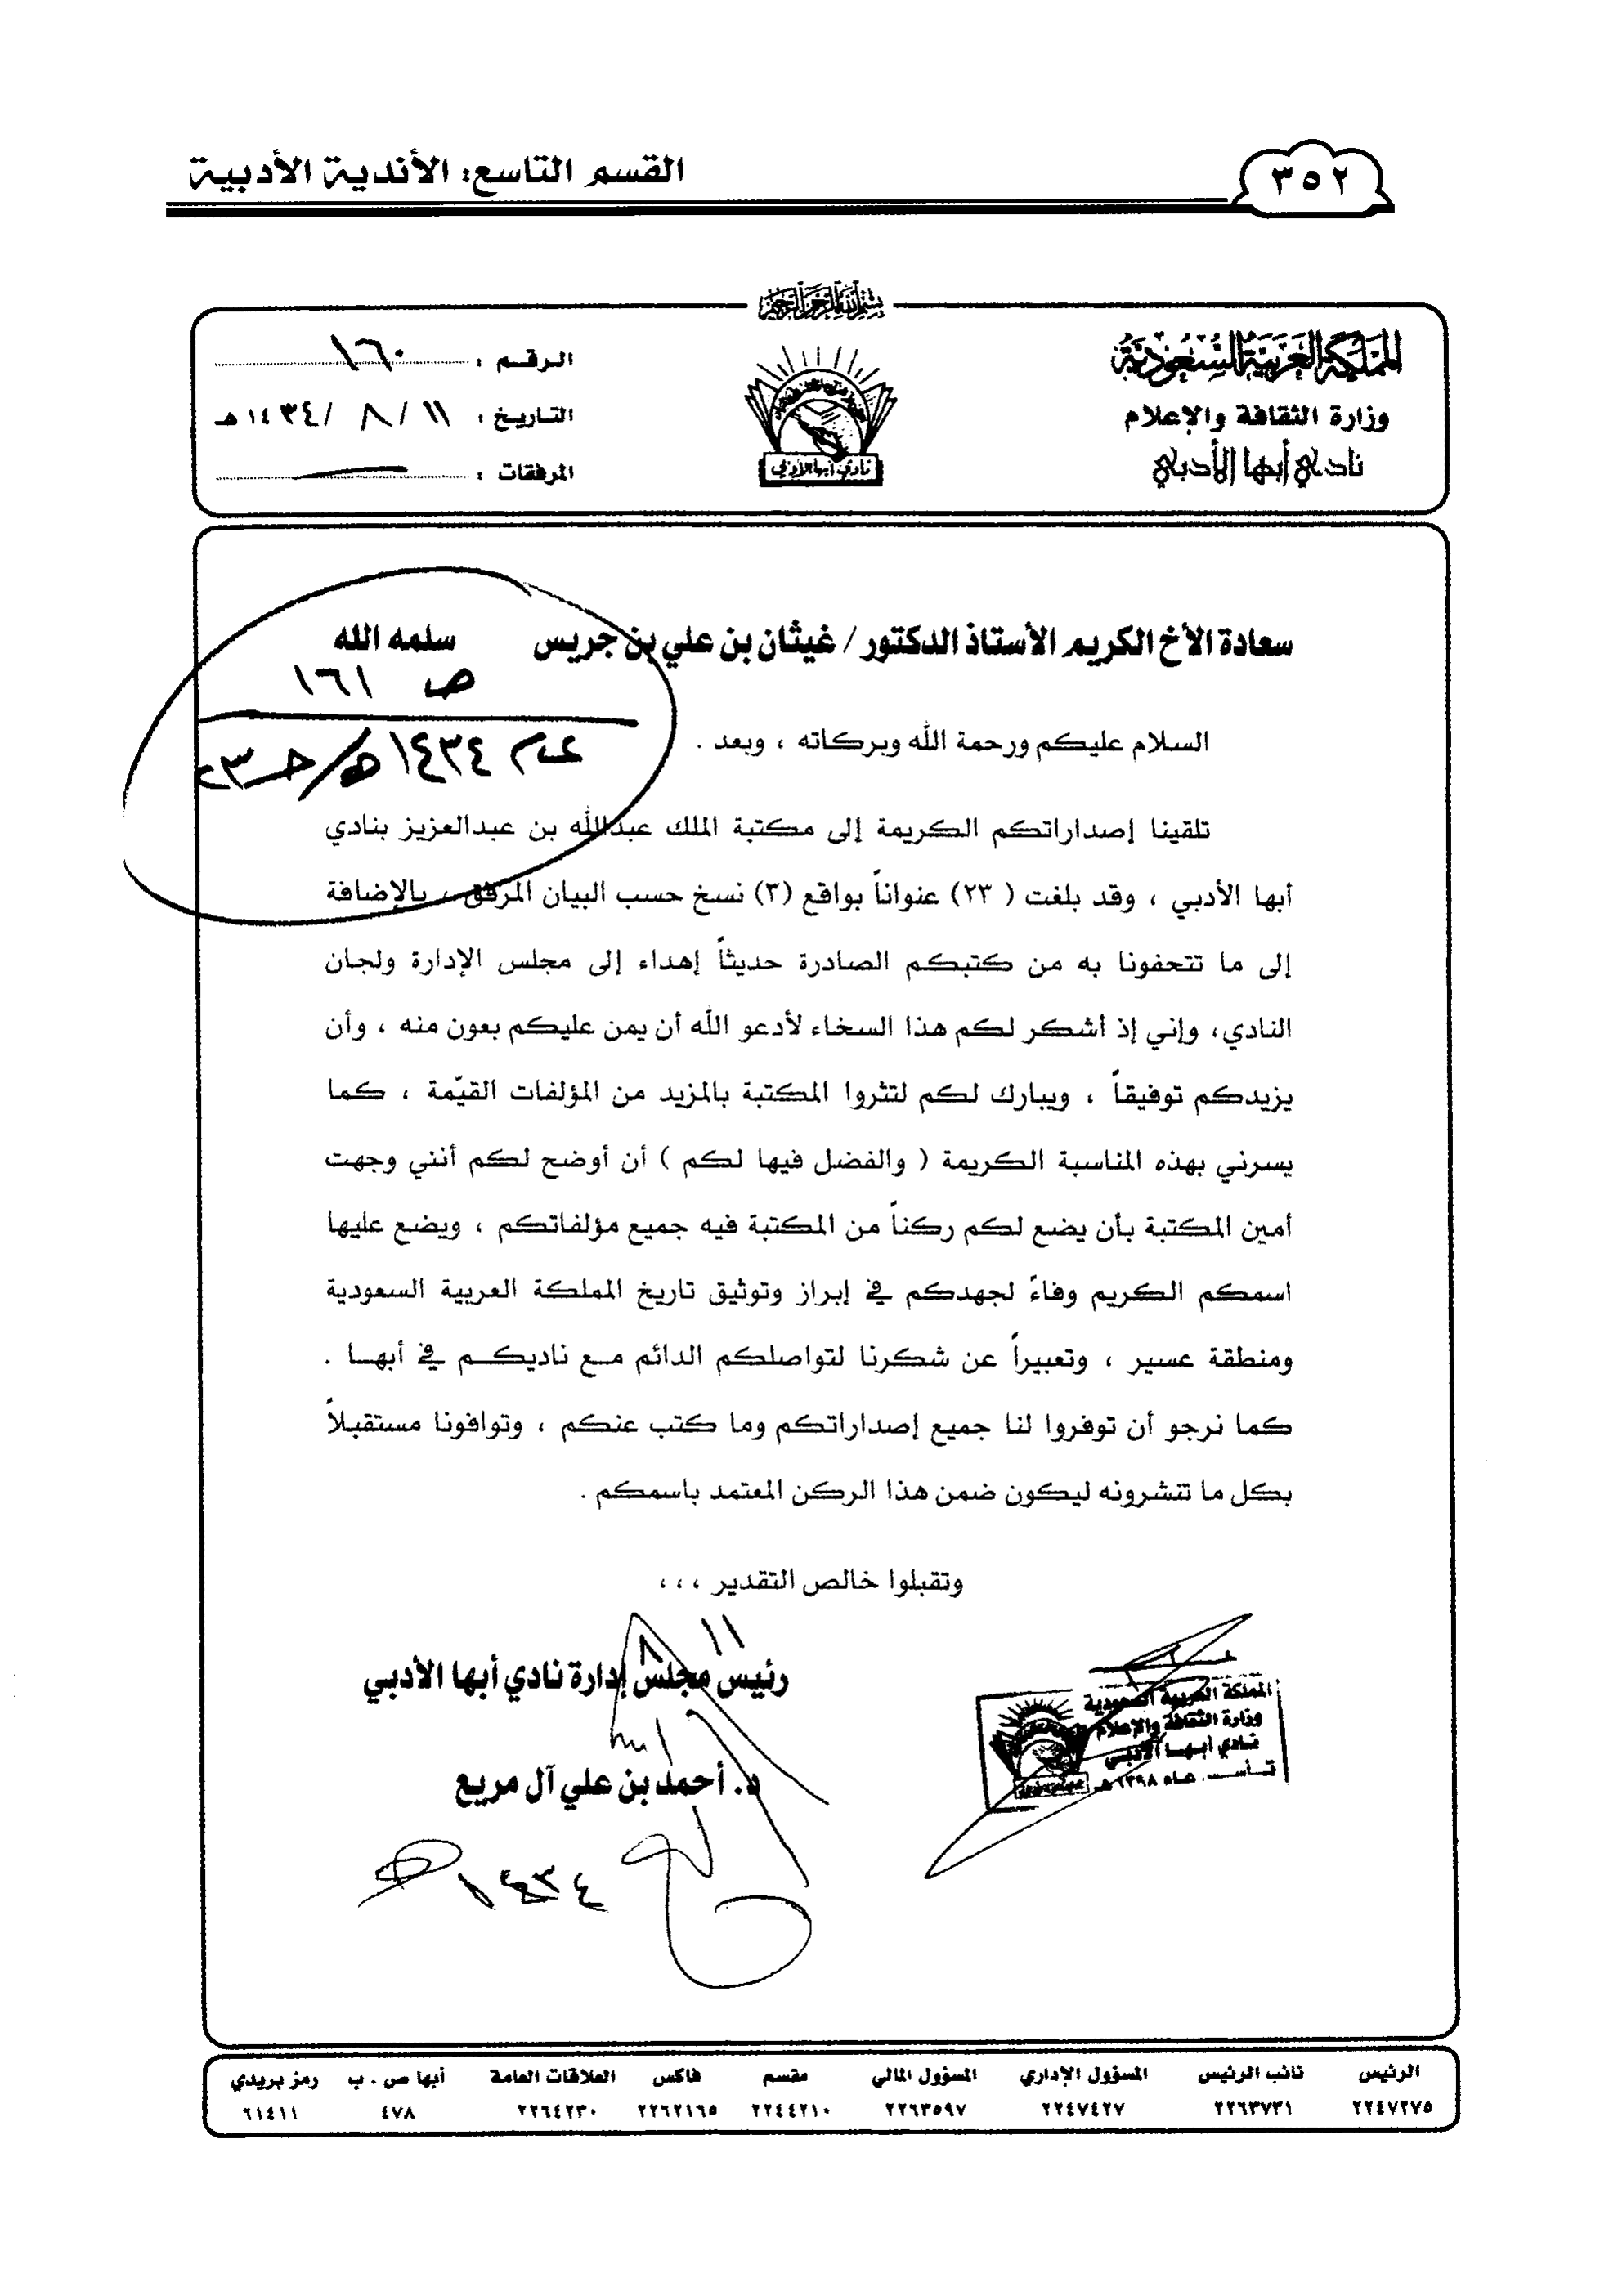 ٣٥٢
القسم التاسع: الأندية الأدبية
بسم الله الرحمن الرحيم
المملكة العربية السعودية
وزارة الثقافة والإعلام
نادي أبها الأدبي
نادي أبها الأدبي
الرقم : ١٦٠
التاريخ : ١١ / ٨ / ١٤٣٤ هـ
المرفقات :
سعادة الأخ الكريم الأستاذ الدكتور / غيثان بن علي بن جريس سلمه الله
ص ١٦١
عام ١٤٣٤هـ / جـ ٢٣
السلام عليكم ورحمة الله وبركاته ، وبعد .
تلقينا إصداراتكم الكريمة إلى مكتبة الملك عبدالله بن عبدالعزيز بنادي
أبها الأدبي ، وقد بلغت ( ٢٣) عنواناً بواقع (٣) نسخ حسب البيان المرفق ، بالإضافة
إلى ما تتحفونا به من كتبكم الصادرة حديثاً إهداء إلى مجلس الإدارة ولجان
النادي، وإني إذ أشكر لكم هذا السخاء لأدعو الله أن يمن عليكم بعون منه ، وأن
يزيدكم توفيقاً ، ويبارك لكم لتثروا المكتبة بالمزيد من المؤلفات القيّمة ، كما
يسرني بهذه المناسبة الكريمة ( والفضل فيها لكم ) أن أوضح لكم أنني وجهت
أمين المكتبة بأن يضع لكم ركناً من المكتبة فيه جميع مؤلفاتكم ، ويضع عليها
اسمكم الكريم وفاءً لجهدكم في إبراز وتوثيق تاريخ المملكة العربية السعودية
ومنطقة عسير ، وتعبيراً عن شكرنا لتواصلكم الدائم مع ناديكم في أبها .
كما نرجو أن توفروا لنا جميع إصداراتكم وما كتب عنكم ، وتوافونا مستقبلاً
بكل ما تنشرونه ليكون ضمن هذا الركن المعتمد باسمكم .
وتقبلوا خالص التقدير ، ، ،
١١ / ٨
رئيس مجلس إدارة نادي أبها الأدبي
د. أحمد بن علي آل مريع
١٤٣٤هـ
المملكة العربية السعودية
وزارة الثقافة والإعلام
نادي أبها الأدبي
تأسس عام ١٣٩٨ هـ
الرئيس نائب الرئيس المسؤول الإداري المسؤول المالي مقسم فاكس العلاقات العامة أبها ص . ب رمز بريدي
٢٢٤٧٢٧٥ ٢٢٦٣٧٣١ ٢٢٤٧٤٢٧ ٢٢٦٣٥٩٧ ٢٢٤٤٢١٠ ٢٢٦٢١٦٥ ٢٢٦٤٢٣٠ ٤٧٨ ٦١٤١١